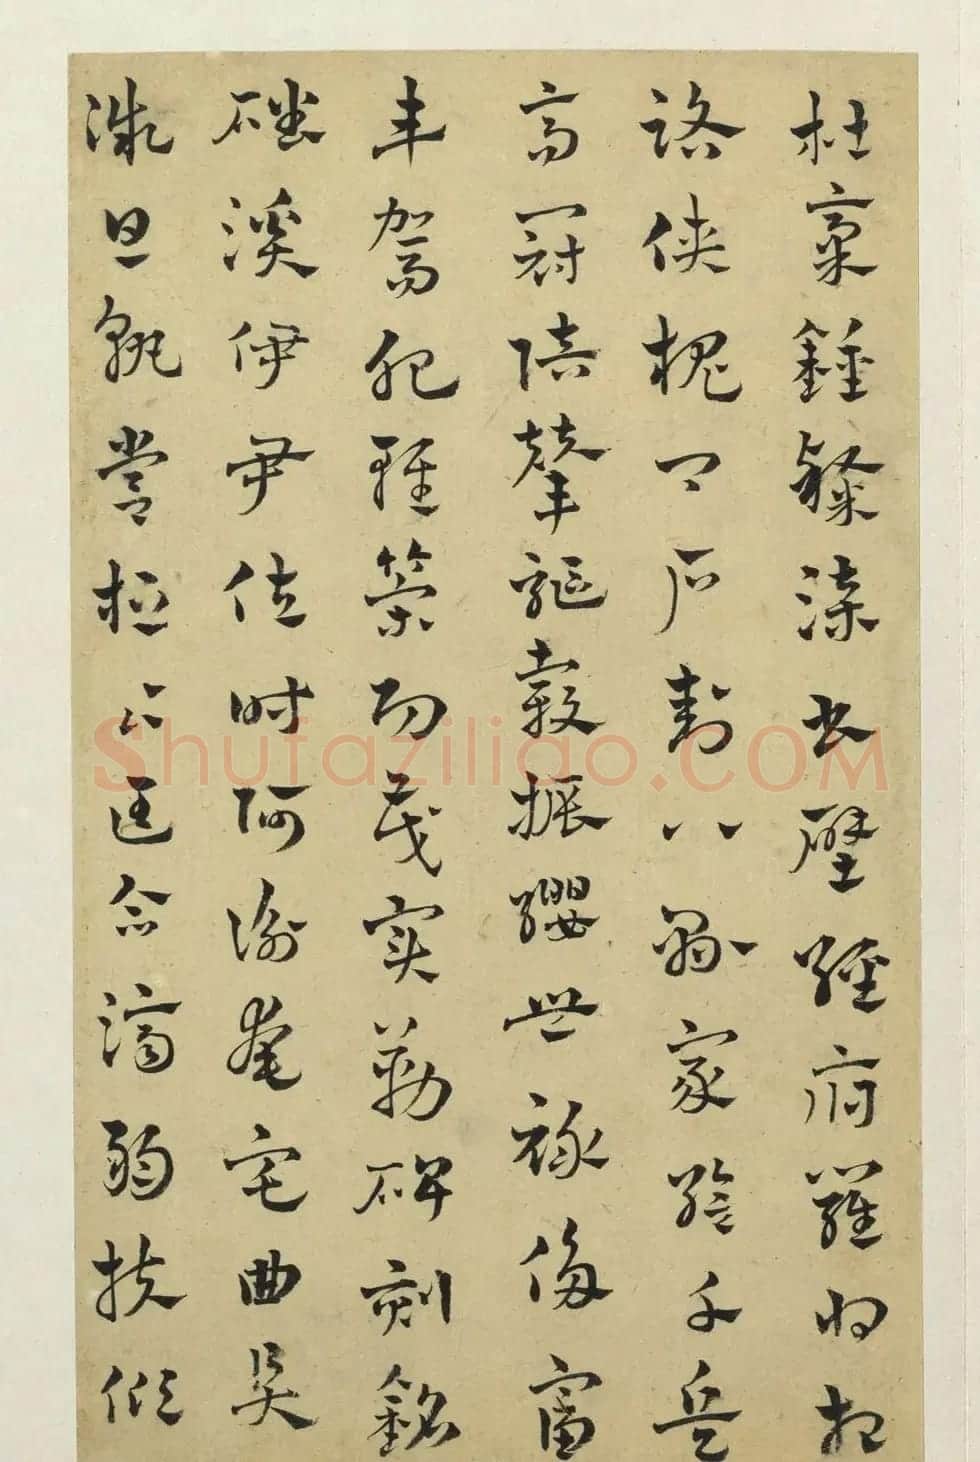 杜稾鍾隸漆書壁經府羅將相
路俠槐卿户封八縣家給千兵
高冠陪輦驅轂振纓世祿侈富
車駕肥輕策功茂實勒碑刻銘
磻溪伊尹佐時阿衡奄宅曲阜
微旦孰營桓公匡合濟弱扶傾
Shufaziliao.COM